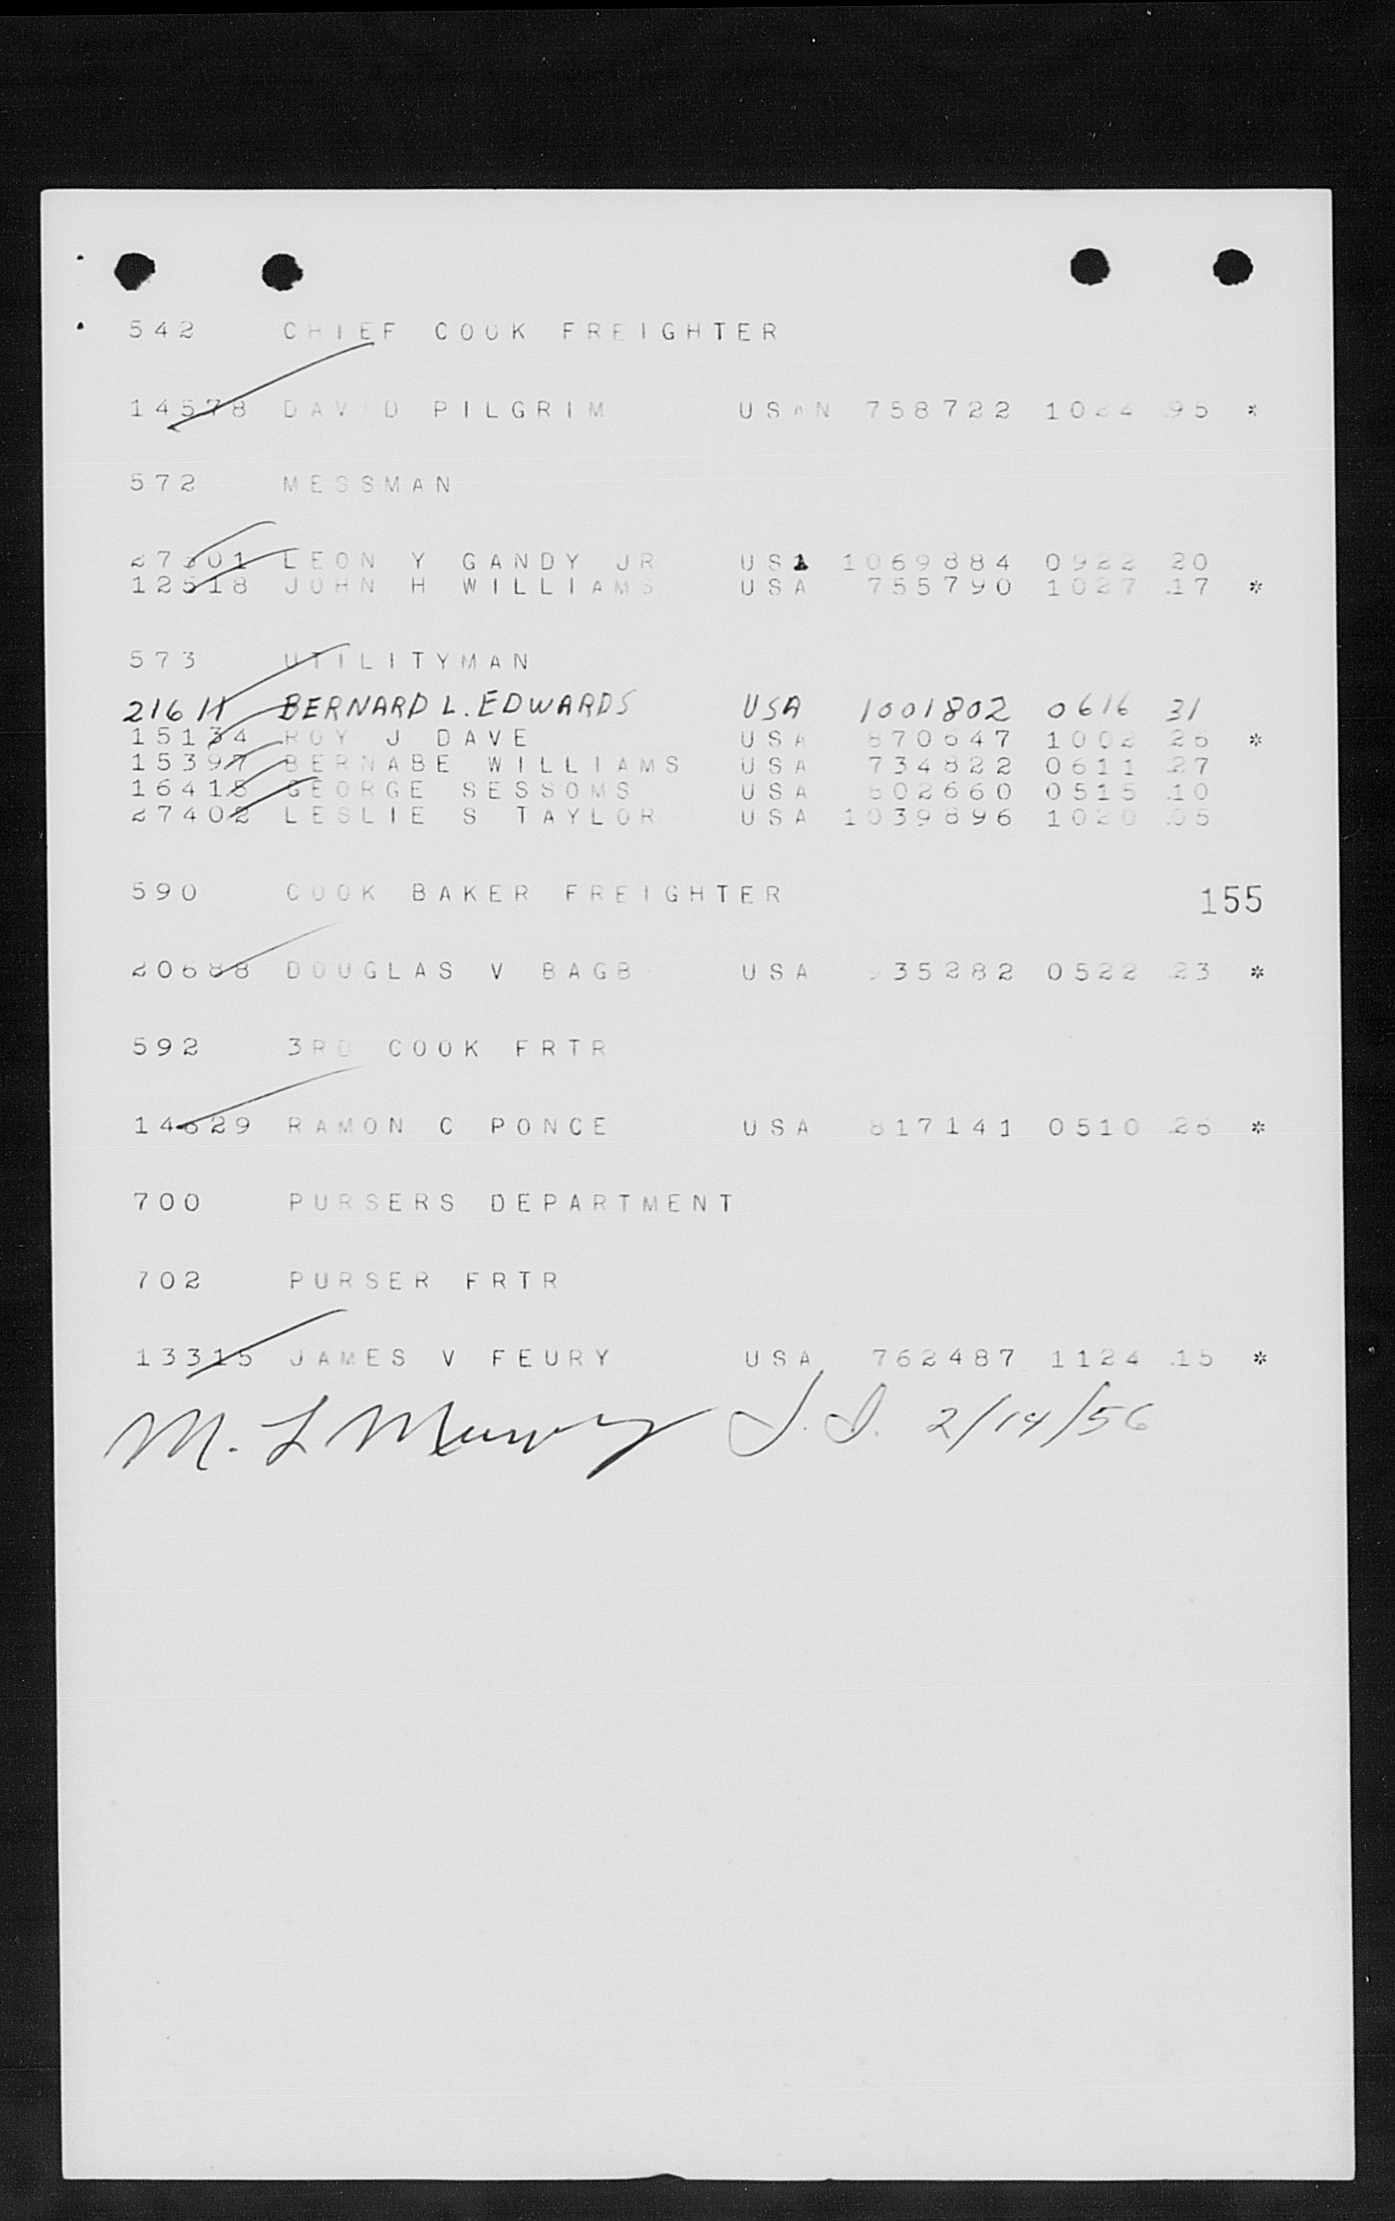 542 CHIEF COOK FREIGHTER
14578 DAVID PILGRIM USAN 758722 1024 95 *
572 MESSMAN
27301 LEON Y GANDY JR USA 1069884 0922 20
12518 JOHN H WILLIAMS USA 755790 1027 17 *
573 UTILITYMAN
BERNARD L. EDWARDS USA 1001802 0616 31
15134 ROY J DAVE USA 870647 1002 26 *
15397 BERNABE WILLIAMS USA 734822 0611 27
16415 GEORGE SESSOMS USA 802660 0515 10
27402 LESLIE S TAYLOR USA 1039896 1020 05
590 COOK BAKER FREIGHTER
155
20688 DOUGLAS V BAGB USA 935282 0522 23 *
592 3RD COOK FRTR
14629 RAMON C PONCE USA 817141 0510 26 *
700 PURSERS DEPARTMENT
702 PURSER FRTR
13315 JAMES V FEURY USA 762487 1124 15 *
M. L 2/14/56